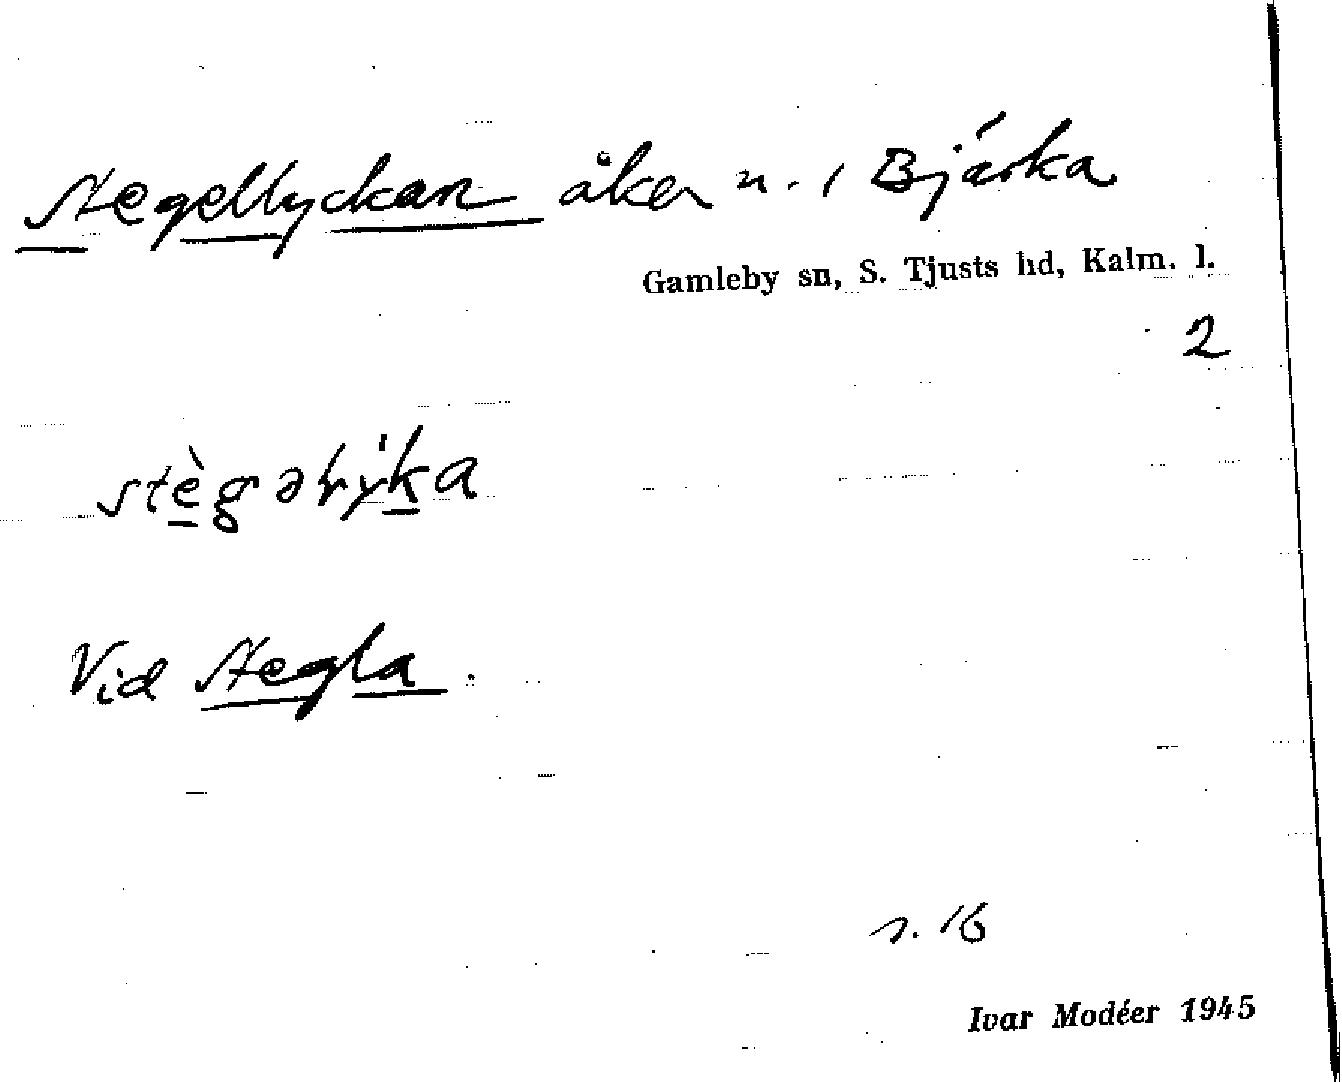 Stegellyckan åker n. i Bjärka
Gamleby sn, S. Tjusts hd, Kalm. l.
2
Vid Stegla.
s. 16
Ivar Modéer 1945